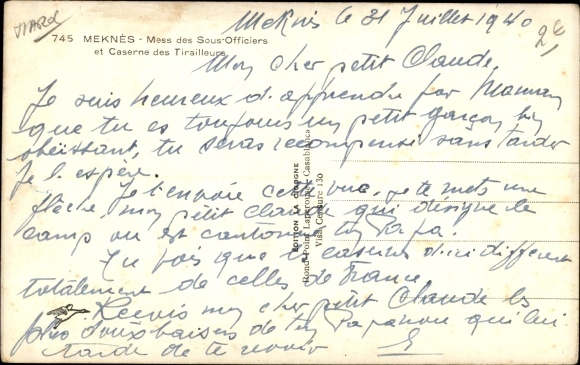 MAROC
2€
Meknès le 31 Juillet 1940
745 MEKNÈS - Mess des Sous-Officiers
et Caserne des Tirailleurs
Mon cher petit Claude,
Je suis heureux d'apprendre par Maman
que tu es toujours un petit garçon bien
obéissant, tu seras recompensé sans tarder
Je l'espère.
Je t'envoie cette vue, je te mets une
flèche mon petit Claude qui désigne le
camp ou est cantonné ton Papa.
Tu vois que les casernes d'ici different
totalement de celles de France
Reçois mon cher petit Claude les
plus doux baisers de ton Papanou qui lui
tarde de te revoir
EDITION LA CIGOGNE
Rond-Point Lapérouse - Casablanca
Visa Censure 130